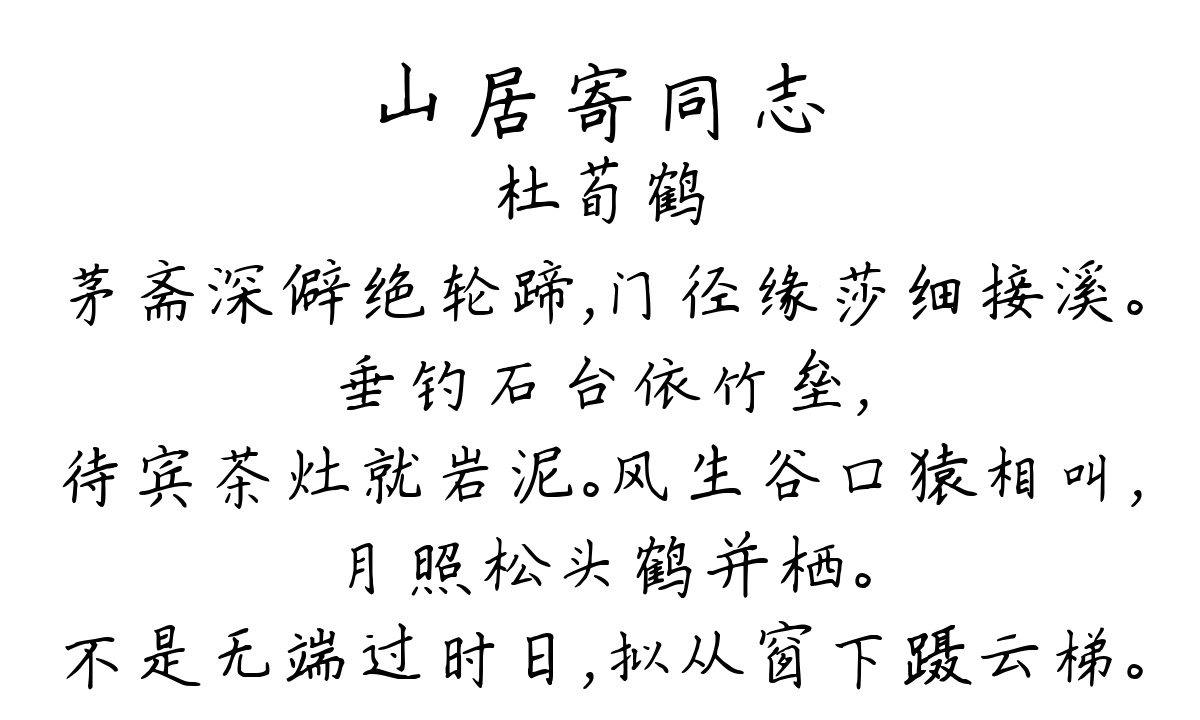 山居寄同志
杜荀鹤
茅斋深僻绝轮蹄,门径缘莎细接溪。
垂钓石台依竹垒,
待宾茶灶就岩泥。风生谷口猿相叫,
月照松头鹤并栖。
不是无端过时日,拟从窗下蹑云梯。